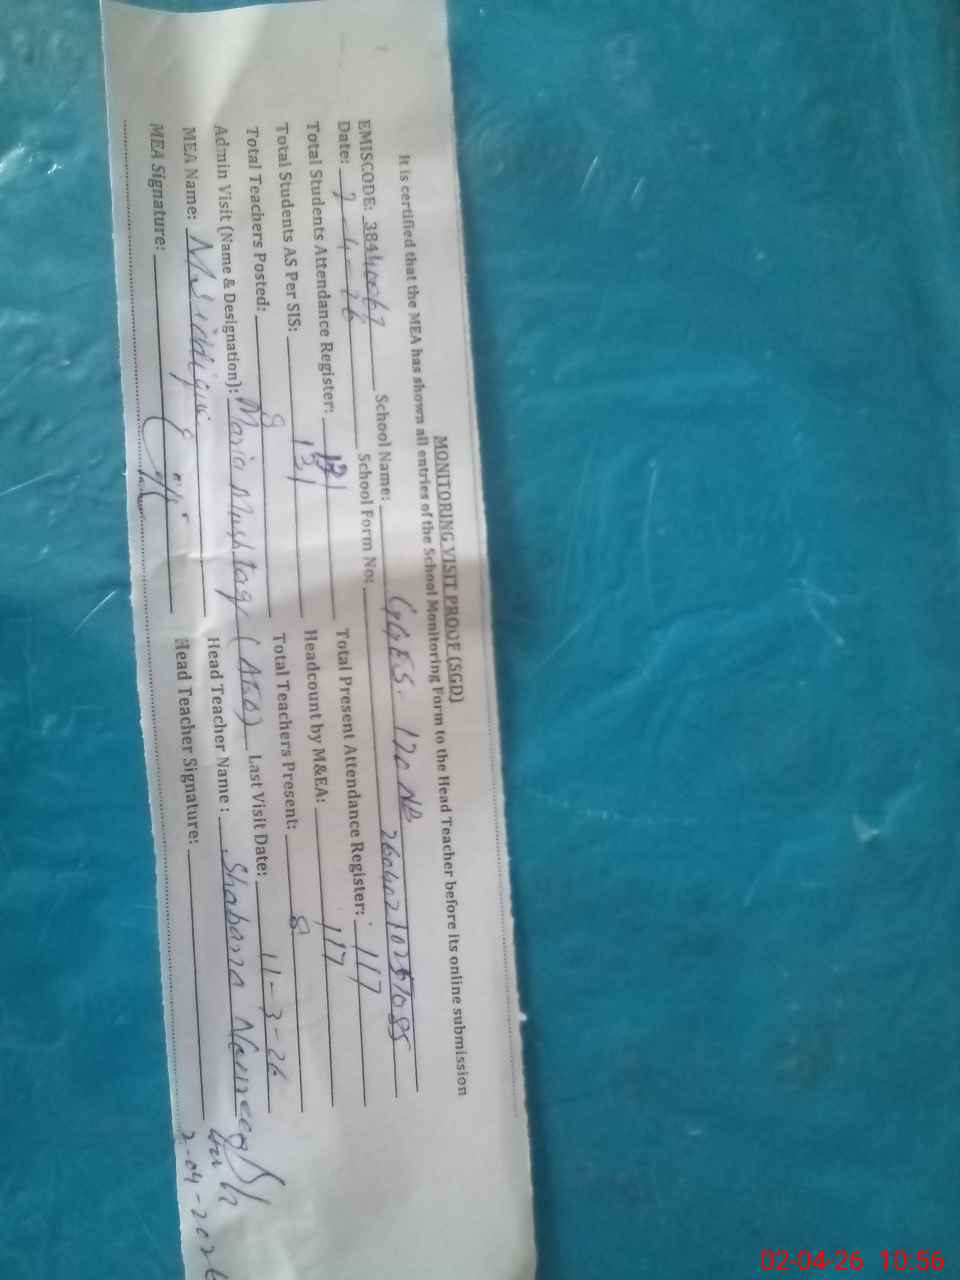 MONITORING VISIT PROOF (SGD)
It is certified that the MEA has shown all entries of the School Monitoring Form to the Head Teacher before its online submission
EMISCODE: 38440067 School Name: GGES. 120 NB
Date: 2-4-26 School Form No: 
Total Students Attendance Register: 131 Total Present Attendance Register: 117
Total Students AS Per SIS: 131 Headcount by M&EA: 117
Total Teachers Posted: 8 Total Teachers Present: 8
Admin Visit (Name & Designation): Maria Mushtaq (AEO) Last Visit Date: 11-3-26
MEA Name: M Siddique Head Teacher Name: Shabana
MEA Signature: Head Teacher Signature:
2-04-2026
02-04-26 10:56